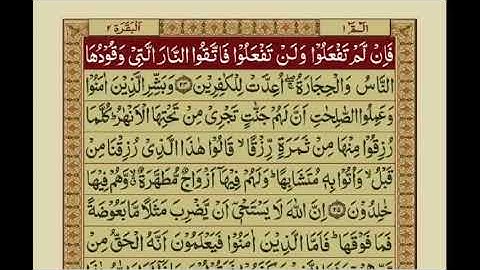 الٓمّٓ ١ اَلْبَقَرَة ٢
فَاِنْ لَّمْ تَفْعَلُوْا وَلَنْ تَفْعَلُوْا فَاتَّقُوا النَّارَ الَّتِیْ وَقُوْدُهَا
النَّاسُ وَالْحِجَارَةُ ۖۚ اُعِدَّتْ لِلْكٰفِرِیْنَ ﴿۲۴﴾ وَبَشِّرِ الَّذِیْنَ اٰمَنُوْا
وَعَمِلُوا الصّٰلِحٰتِ اَنَّ لَهُمْ جَنّٰتٍ تَجْرِیْ مِنْ تَحْتِهَا الْاَنْهٰرُ ؕ كُلَّمَا
رُزِقُوْا مِنْهَا مِنْ ثَمَرَةٍ رِّزْقًا ۙ قَالُوْا هٰذَا الَّذِیْ رُزِقْنَا مِنْ
قَبْلُ ۙ وَاُتُوْا بِهٖ مُتَشَابِهًا ؕ وَلَهُمْ فِیْهَاۤ اَزْوَاجٌ مُّطَهَّرَةٌ ۙ وَّهُمْ فِیْهَا
خٰلِدُوْنَ ﴿۲۵﴾ اِنَّ اللّٰهَ لَا یَسْتَحْیٖۤ اَنْ یَّضْرِبَ مَثَلًا مَّا بَعُوْضَةً
فَمَا فَوْقَهَا ؕ فَاَمَّا الَّذِیْنَ اٰمَنُوْا فَیَعْلَمُوْنَ اَنَّهُ الْحَقُّ مِنْ